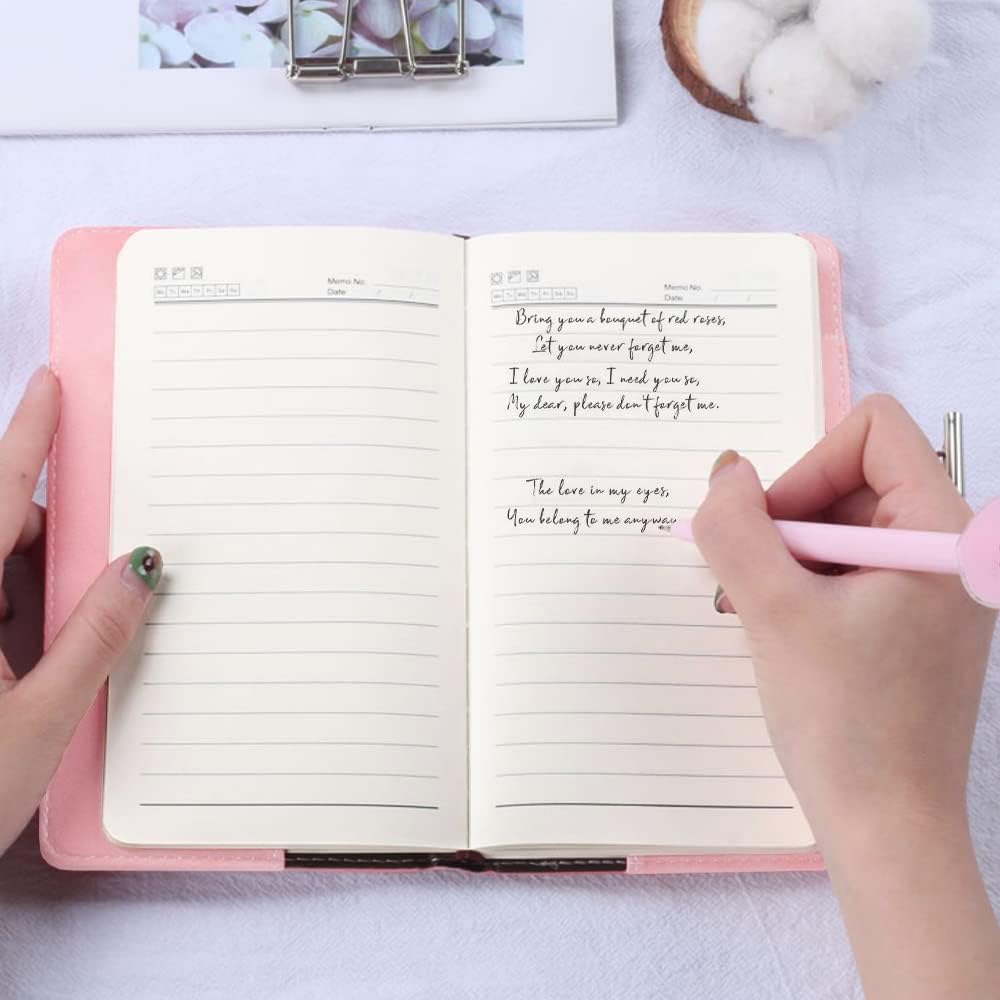 Memo No.
Date / /
Mo Tu We Th Fr Sa Su
Memo No.
Date / /
Mo Tu We Th Fr Sa Su
Bring you a bouquet of red roses,
Let you never forget me,
I love you so, I need you so,
My dear, please don't forget me.
The love in my eyes,
You belong to me anyway